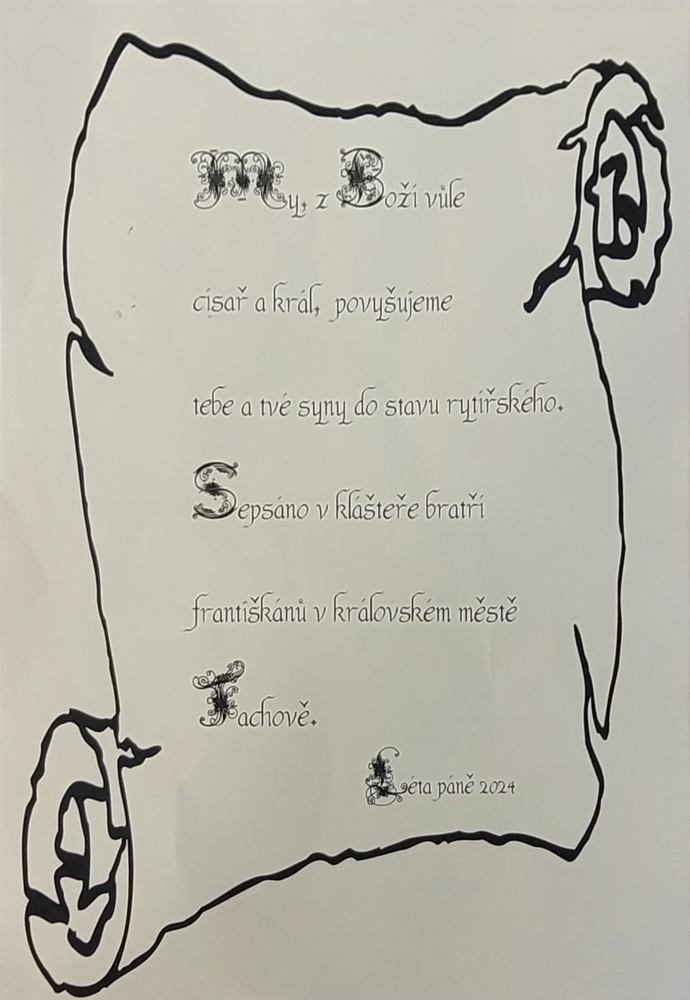 My, z Boží vůle
císař a král, povyšujeme
tebe a tvé syny do stavu rytířského.
Sepsáno v klášteře bratří
františkánů v královském městě
Tachově.
Léta páně 2024